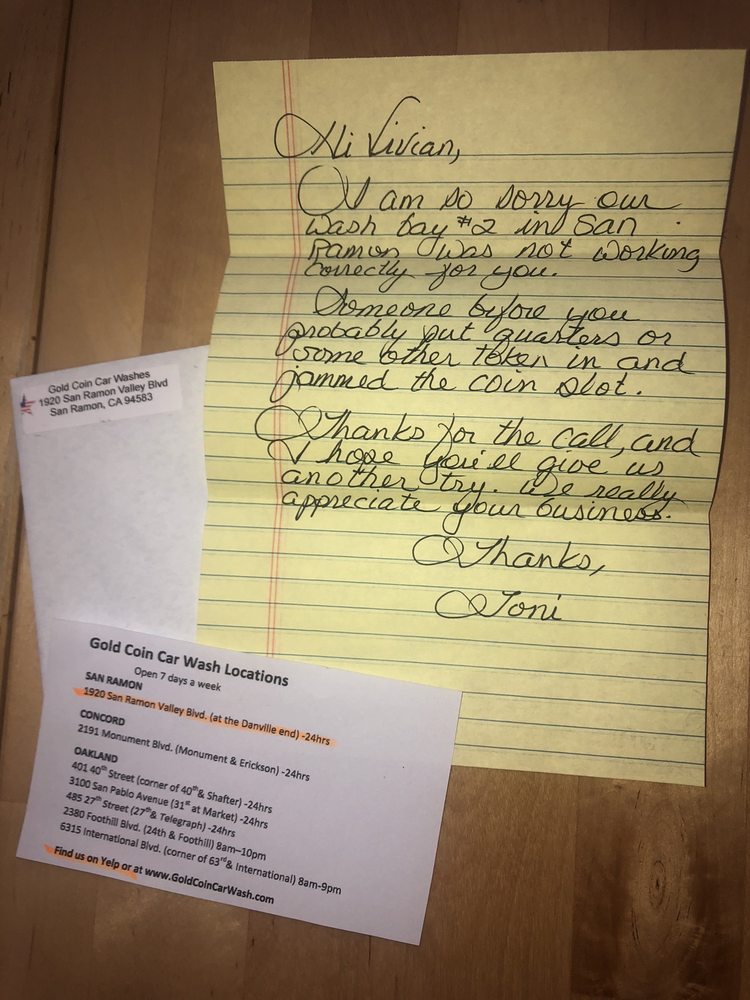 Hi Vivian,
I am so sorry our
wash bay #2 in San
Ramon was not working
correctly for you.
Someone before you
probably put quarters or
some other token in and
jammed the coin slot.
Thanks for the call, and
I hope you'll give us
another try. We really
appreciate your business.
Thanks,
Toni
Gold Coin Car Washes
1920 San Ramon Valley Blvd
San Ramon, CA 94583
Gold Coin Car Wash Locations
Open 7 days a week
SAN RAMON
1920 San Ramon Valley Blvd. (at the Danville end) -24hrs
CONCORD
2191 Monument Blvd. (Monument & Erickson) -24hrs
OAKLAND
401 40th Street (corner of 40th & Shafter) -24hrs
3100 San Pablo Avenue (31st at Market) -24hrs
485 27th Street (27th & Telegraph) -24hrs
2380 Foothill Blvd. (24th & Foothill) 8am–10pm
6315 International Blvd. (corner of 63rd & International) 8am-9pm
Find us on Yelp or at www.GoldCoinCarWash.com